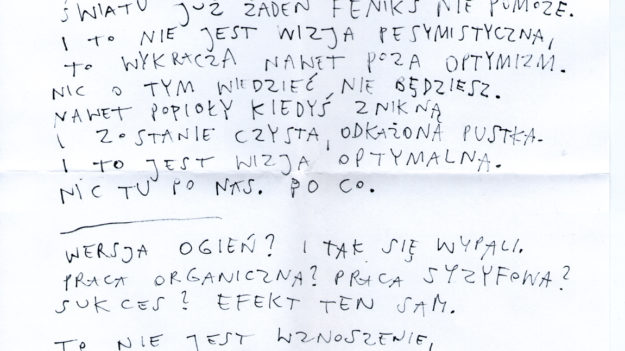 ŚWIATU JUŻ ŻADEN FENIKS NIE POMOŻE.
I TO NIE JEST WIZJA PESYMISTYCZNA,
TO WYKRACZA NAWET POZA OPTYMIZM.
NIC O TYM WIEDZIEĆ NIE BĘDZIESZ.
NAWET POPIOŁY KIEDYŚ ZNIKNĄ
I ZOSTANIE CZYSTA, ODKAŻONA PUSTKA.
I TO JEST WIZJA OPTYMALNA.
NIC TU PO NAS. PO CO.
WERSJA OGIEŃ? I TAK SIĘ WYPALI.
PRACA ORGANICZNA? PRACA SYZYFOWA?
SUKCES? EFEKT TEN SAM.
TO NIE JEST WZNOSZENIE,